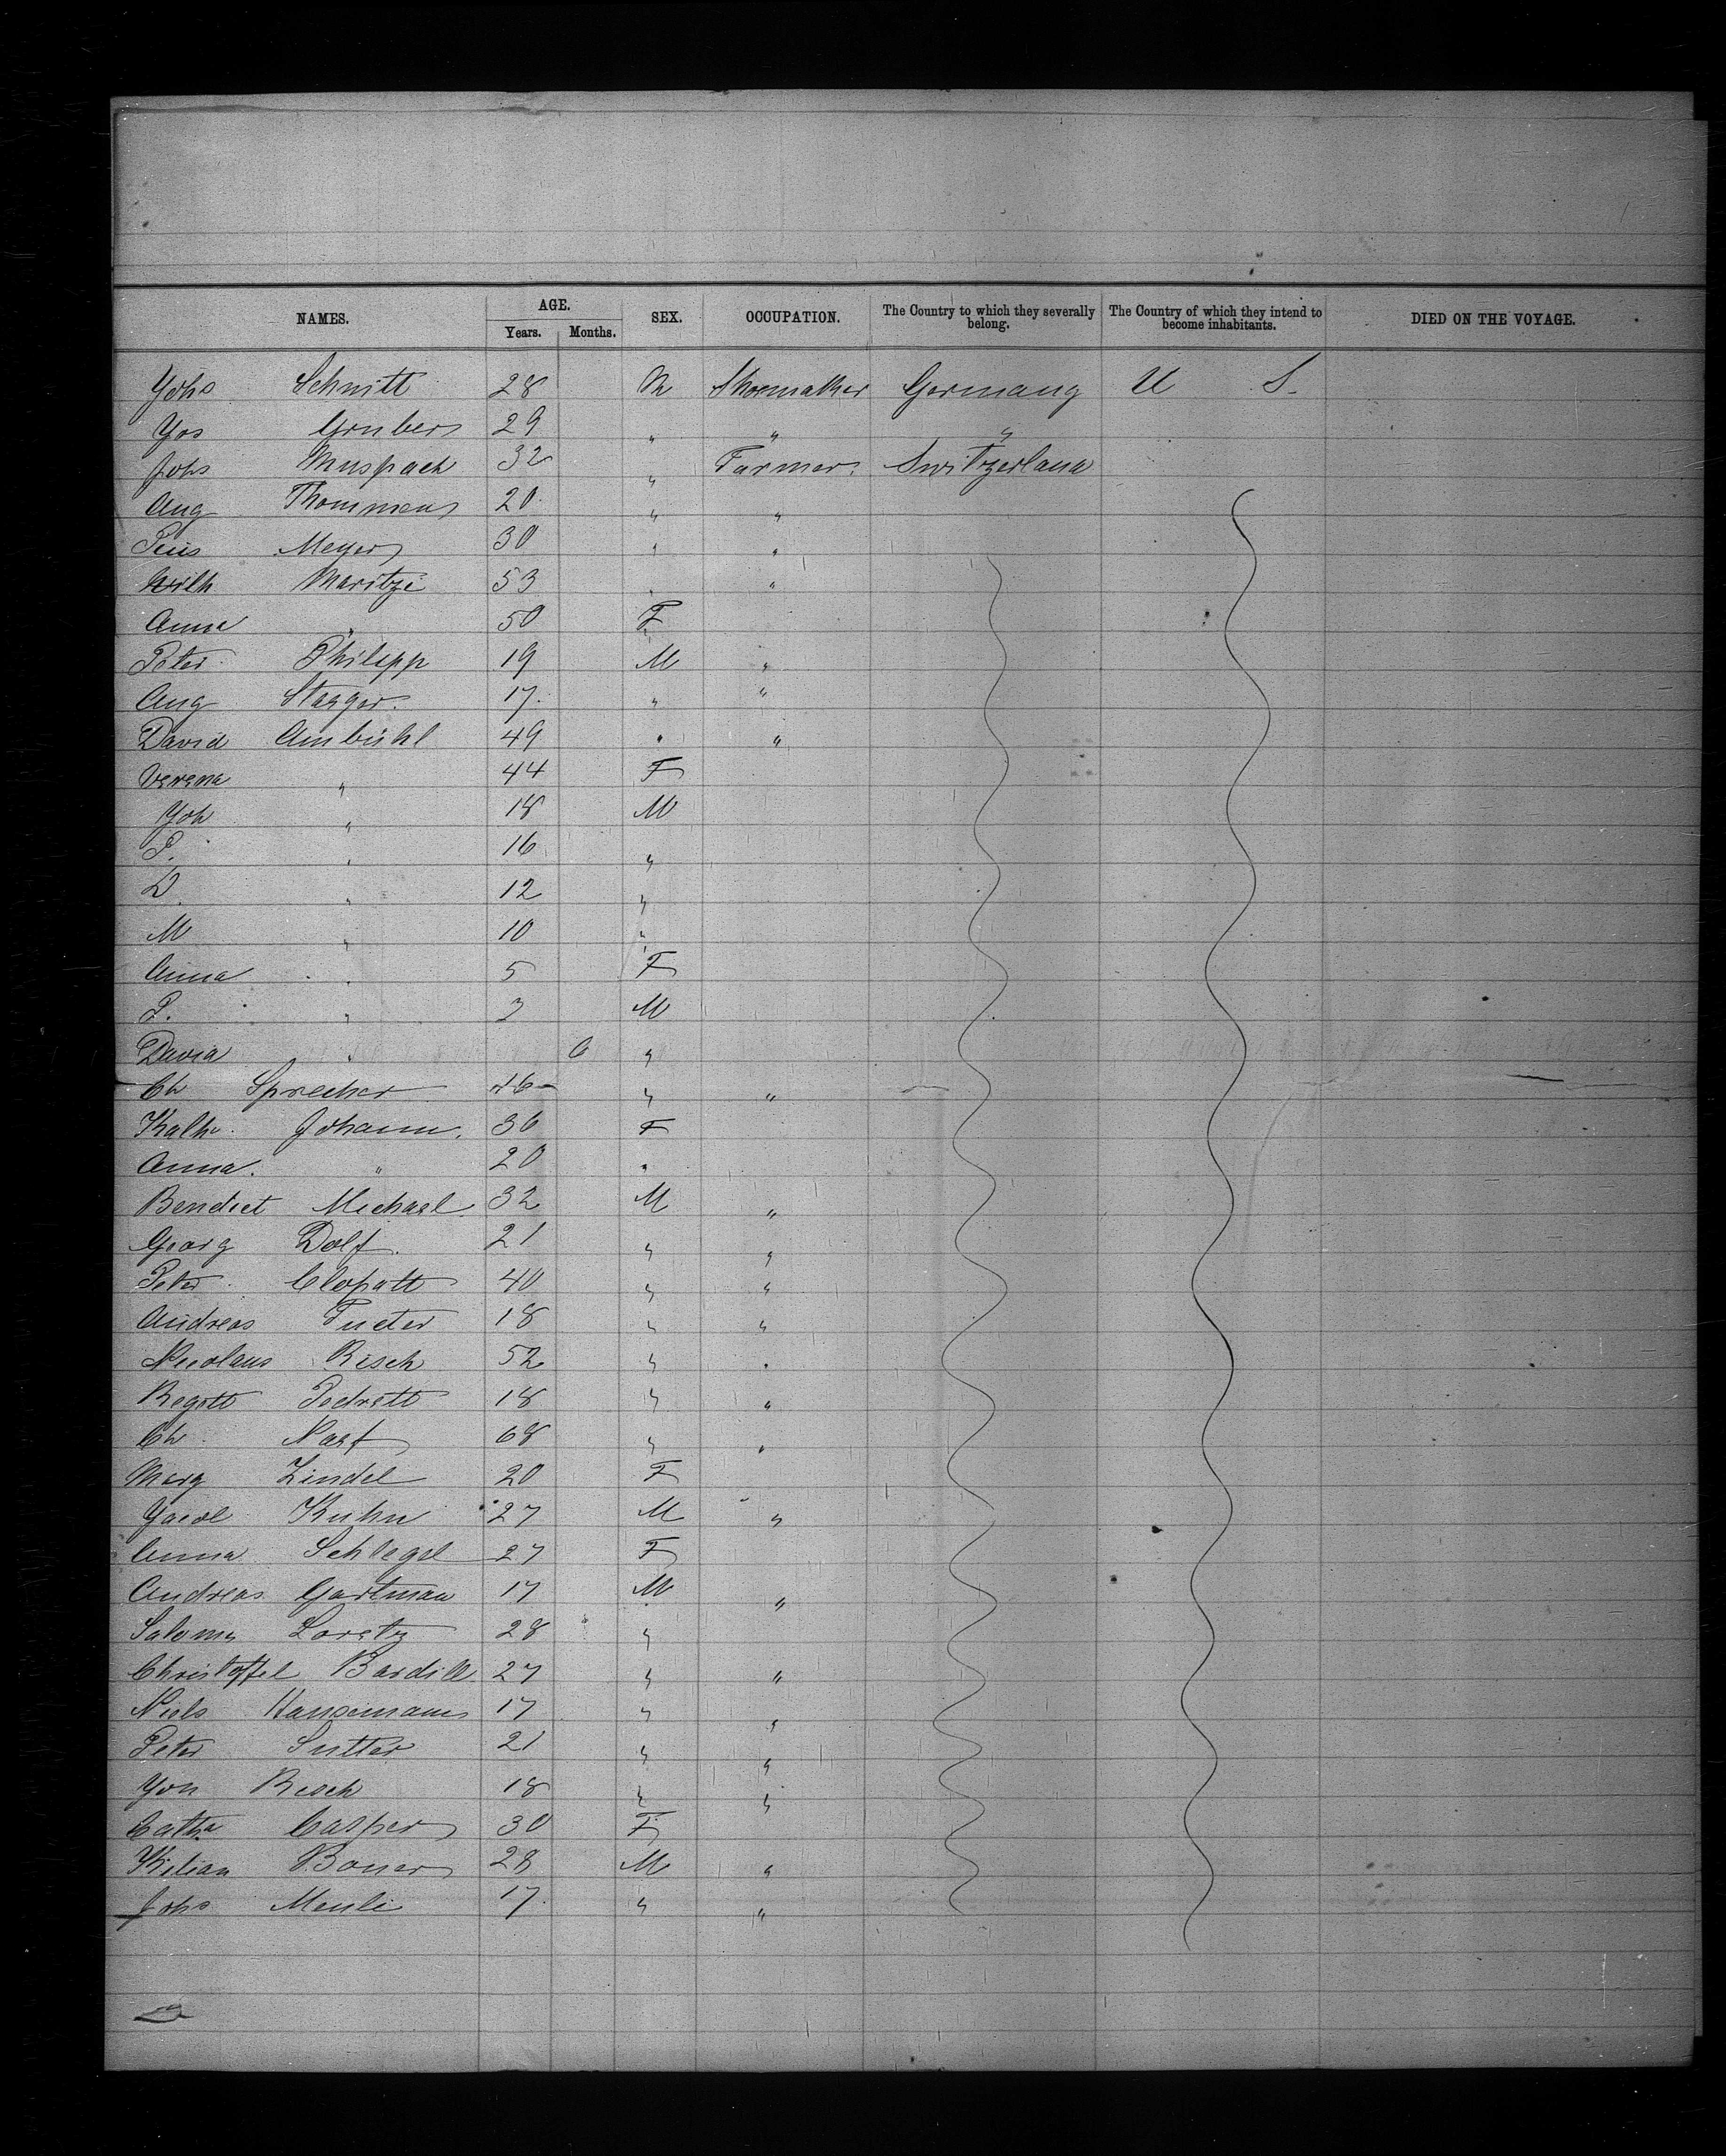 NAMES. AGE. Years. Months. SEX. OCCUPATION. The Country to which they severally belong. The Country of which they intend to become inhabitants. DIED ON THE VOYAGE.
Yohs Schmitt 28 M Shoemaker Germany U S.
Yos Gruber 29 " " "
Johs Muspach 32 " Farmer. Switzerland
Aug Thommen 20 " "
Pius Meyer 30 " "
Wilh Maritzi 53 " "
Anna " 50 F
Peter Philipp 19 M "
Aug Stagger. 17. " "
David Ambühl 49 " "
Verena " 44 F
Yoh " 18 M
P. " 16 "
D. " 12 "
M " 10 "
Anna " 5 F
P. " 3 M
David " 6 "
Ch Sprecher 46 " "
Kath. Johann. 36 F
Anna. " 20 "
Bendict Michael 32 M "
Georg Dolf. 21 " "
Peter Clopatt 40 " "
Andreas 18 " "
Nicolaus Risch 52 " "
Pedrett 18 " "
Ch Narf 68 " "
Marg Zindel 20 F
Kuhn 27 M "
Anna Schlegel 27 F
Andreas Gartman 17 M "
Salomy Loretz 28 "
Christoffel Bardill 27 " "
Niels Hansemann 17 " "
Peter Sutter 21 " "
Yon Risch 18 " "
Catha Casper 30 F
Kilian Boner 28 M "
Johs Menli 17. " "